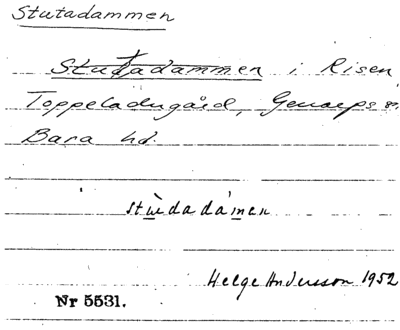 Stutadammen
Stutadammen i Risen,
Toppeladugård, Genarps sn,
Bara hd.
stùdadámen
Helge Andersson 1952
Nr 5531.